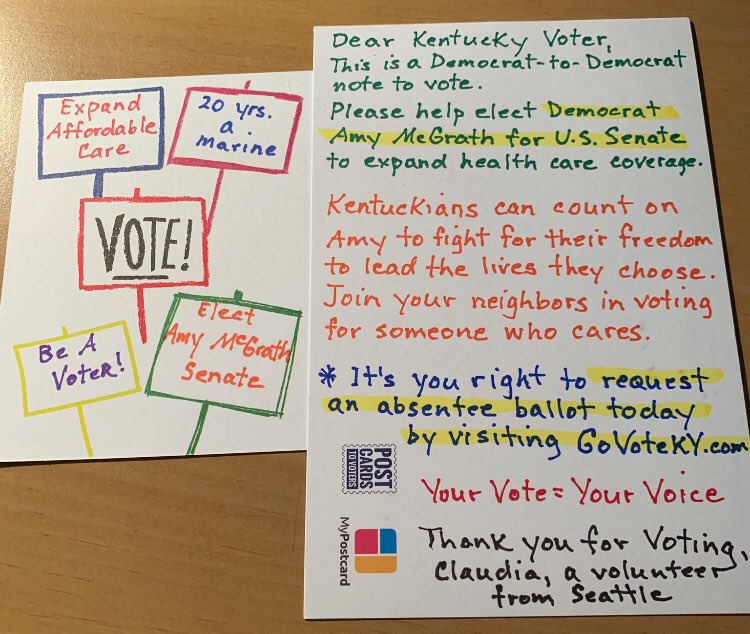 Expand
Affordable
Care
20 yrs.
a
marine
VOTE!
Be A
Voter!
Elect
Amy McGrath
Senate
Dear Kentucky Voter,
This is a Democrat-to-Democrat
note to vote.
Please help elect Democrat
Amy McGrath for U.S. Senate
to expand health care coverage.
Kentuckians can count on
Amy to fight for their freedom
to lead the lives they choose.
Join your neighbors in voting
for someone who cares.
* It's you right to request
an absentee ballot today
by visiting GoVoteKY.com
POST
CARDS
TO VOTERS
Your Vote = Your Voice
MyPostcard
Thank you for Voting,
Claudia, a volunteer
from Seattle